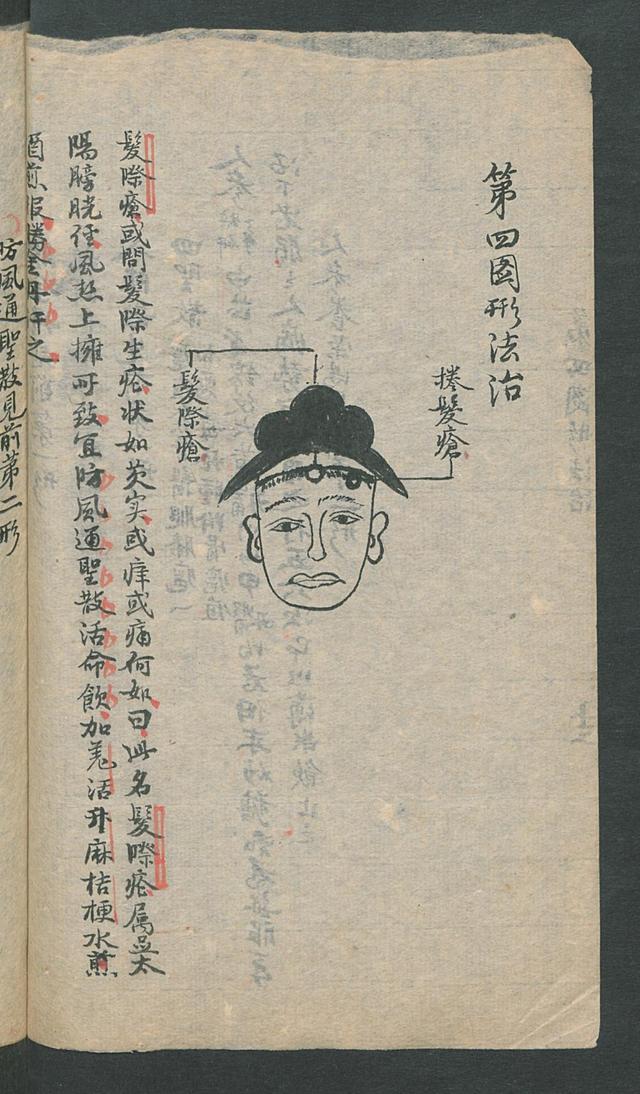 第四图形法治
捲髮瘡
髮際瘡
髮際瘡或問髮際生瘡状如芡实或痒或痛何如曰此名髮際瘡属足太
陽膀胱經風热上擁所致宜防風通聖散活命飲加羌活升麻桔梗水煎
酒煎服勝金丹汗之
防風通聖散見前第二形